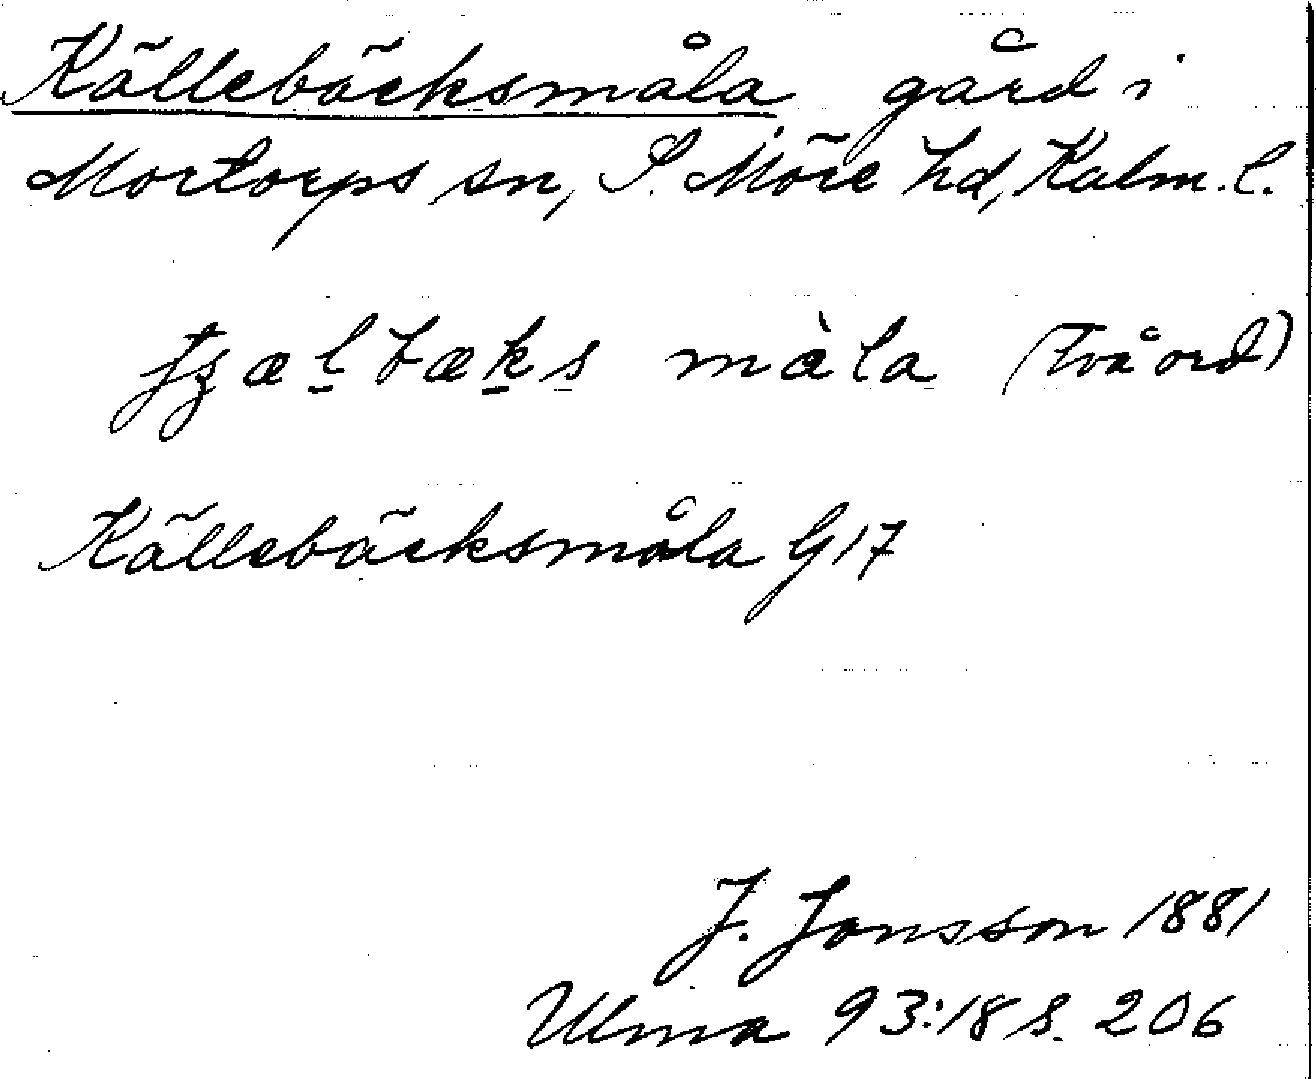 Källebäcksmåla gård i
Mortorps sn, S. Möre hd, Kalm. l.
bæks måla (två ord)
Källebäcksmåla G17
J. Jonsson 1881
Ulma 93:18 s. 206